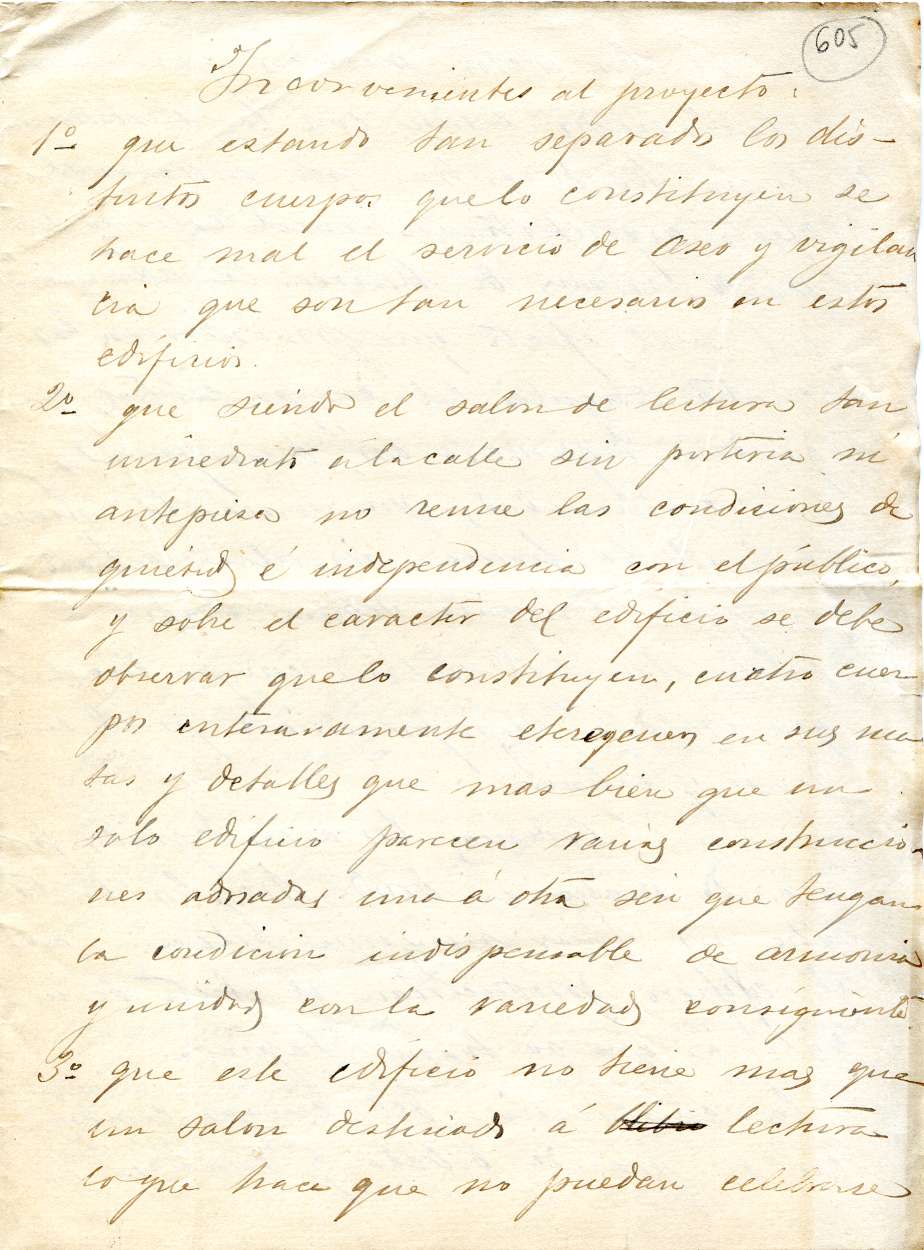 605
Inconvenientes al proyecto.
1º que estando tan separados los dis-
tintos cuerpos que lo constituyen se
hace mal el servicio de aseo y vigilan
cia que son tan necesarios en estos
edificios.
2º que siendo el salon de lectura tan
inmediato á la calle sin porteria ni
antepieza no reune las condiciones de
quietud é independencia con el público,
y sobre el caracter del edificio se debe
observar que lo constituyen, cuatro cuer
pos enteravamente eterogeneos en sus ma
sas y detalles que mas bien que un
solo edificio parecen varias construccio
nes adosadas una á otra sin que tengan
la condicion indispensable de armonia
y unidad con la variedad consiguiente
3º que este edificio no tiene mas que
un salon destinado á lectura
lo que hace que no puedan celebrarse